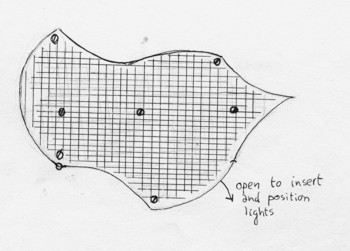 open to insert
and position
lights